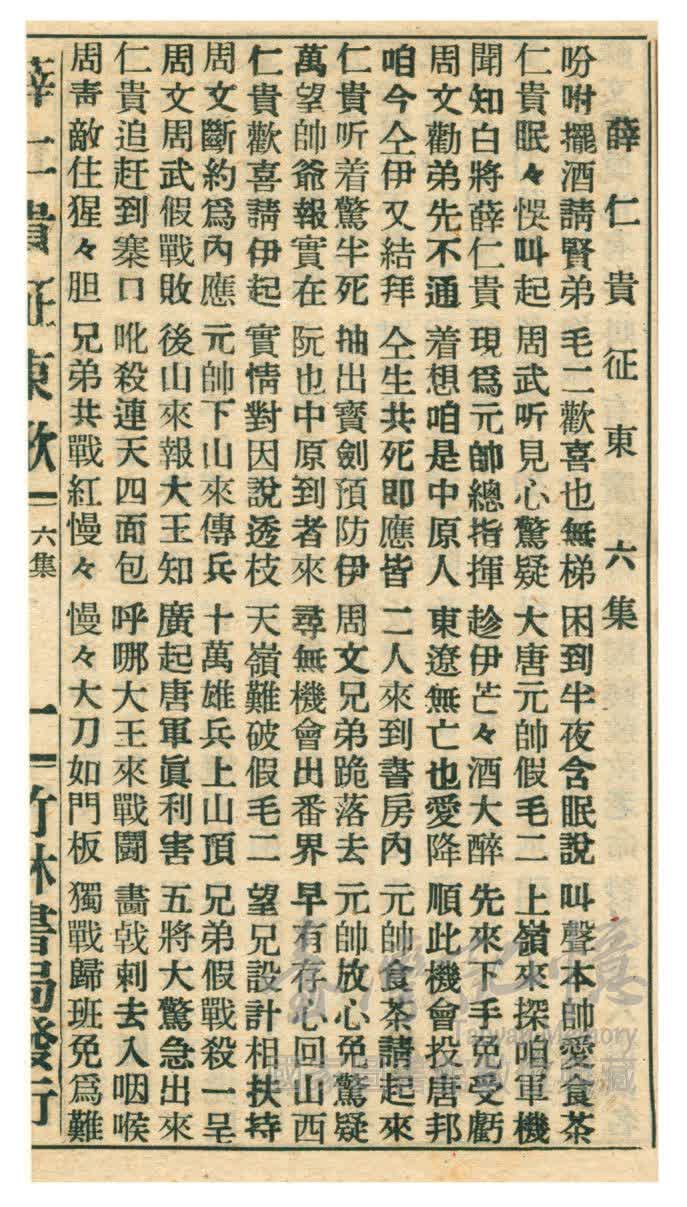 薛仁貴征東 六集
吩咐擺酒請賢弟 毛二歡喜也無梯 困到半夜含眠說 叫聲本帥愛食茶
仁貴眠々悞叫起 周武听見心驚疑 大唐元帥假毛二 上嶺來探咱軍機
聞知白將薛仁貴 現爲元帥總指揮 趁伊芒々酒大醉 先來下手免受虧
周文勸弟先不通 着想咱是中原人 東遼無亡也愛降 順此機會投唐邦
咱今仝伊又結拜 仝生共死即應皆 二人來到書房內 元帥食茶請起來
仁貴听着驚半死 抽出寶劍預防伊 周文兄弟跪落去 元帥放心免驚疑
萬望帥爺報實在 阮也中原到者來 尋無機會出番界 早有存心回山西
仁貴歡喜請伊起 實情對因說透枝 天嶺難破假毛二 望兄設計相扶持
周文斷約爲內應 元帥下山來傳兵 十萬雄兵上山頂 兄弟假戰殺一呈
周文周武假戰敗 後山來報大王知 廣起唐軍眞利害 五將大驚急出來
仁貴追赶到寨口 吪殺連天四面包 呼哪大王來戰鬪 畵戟刺去入咽喉
周靑敵住猩々胆 兄弟共戰紅慢々 慢々大刀如門板 獨戰歸班免爲難
薛仁貴征東歌 六集 一 竹林書局發行
臺灣記憶
Taiwan Memory